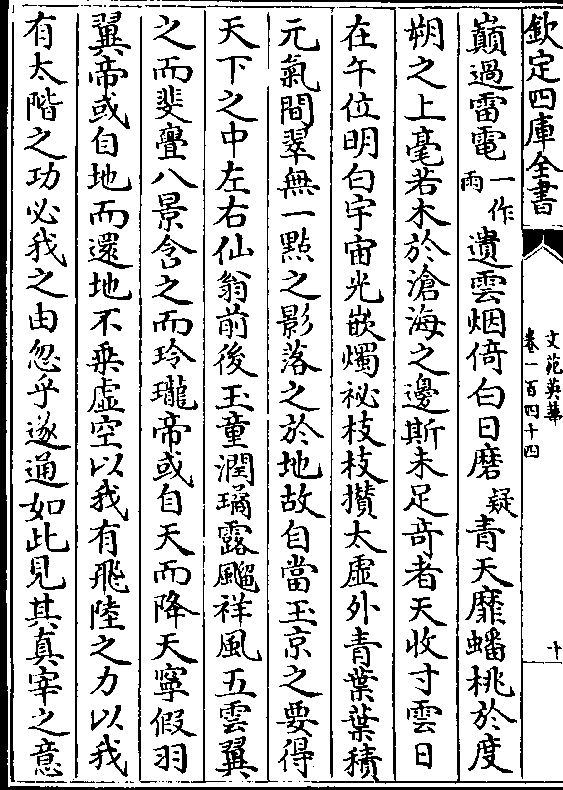 欽定四庫全書
文苑英華
卷一百四十四
十
巔過雷電一作雨遺雲烟倚白日磨疑青天靡蟠桃於度
朔之上毫若木於滄海之邊斯未足奇者天收寸雲日
在午位明白宇宙光嵌燭祕枝枝攢太虛外青葉葉積
元氣間翠無一點之影落之於地故自當玉京之要得
天下之中左右仙翁前後玉童潤瑀露颸祥風五雲翼
之而斐亹八景含之而玲瓏帝或自天而降天寧假羽
翼帝或自地而還地不乗虛空以我有飛陸之力以我
有太階之功必我之由忽乎遂通如此見其真宰之意